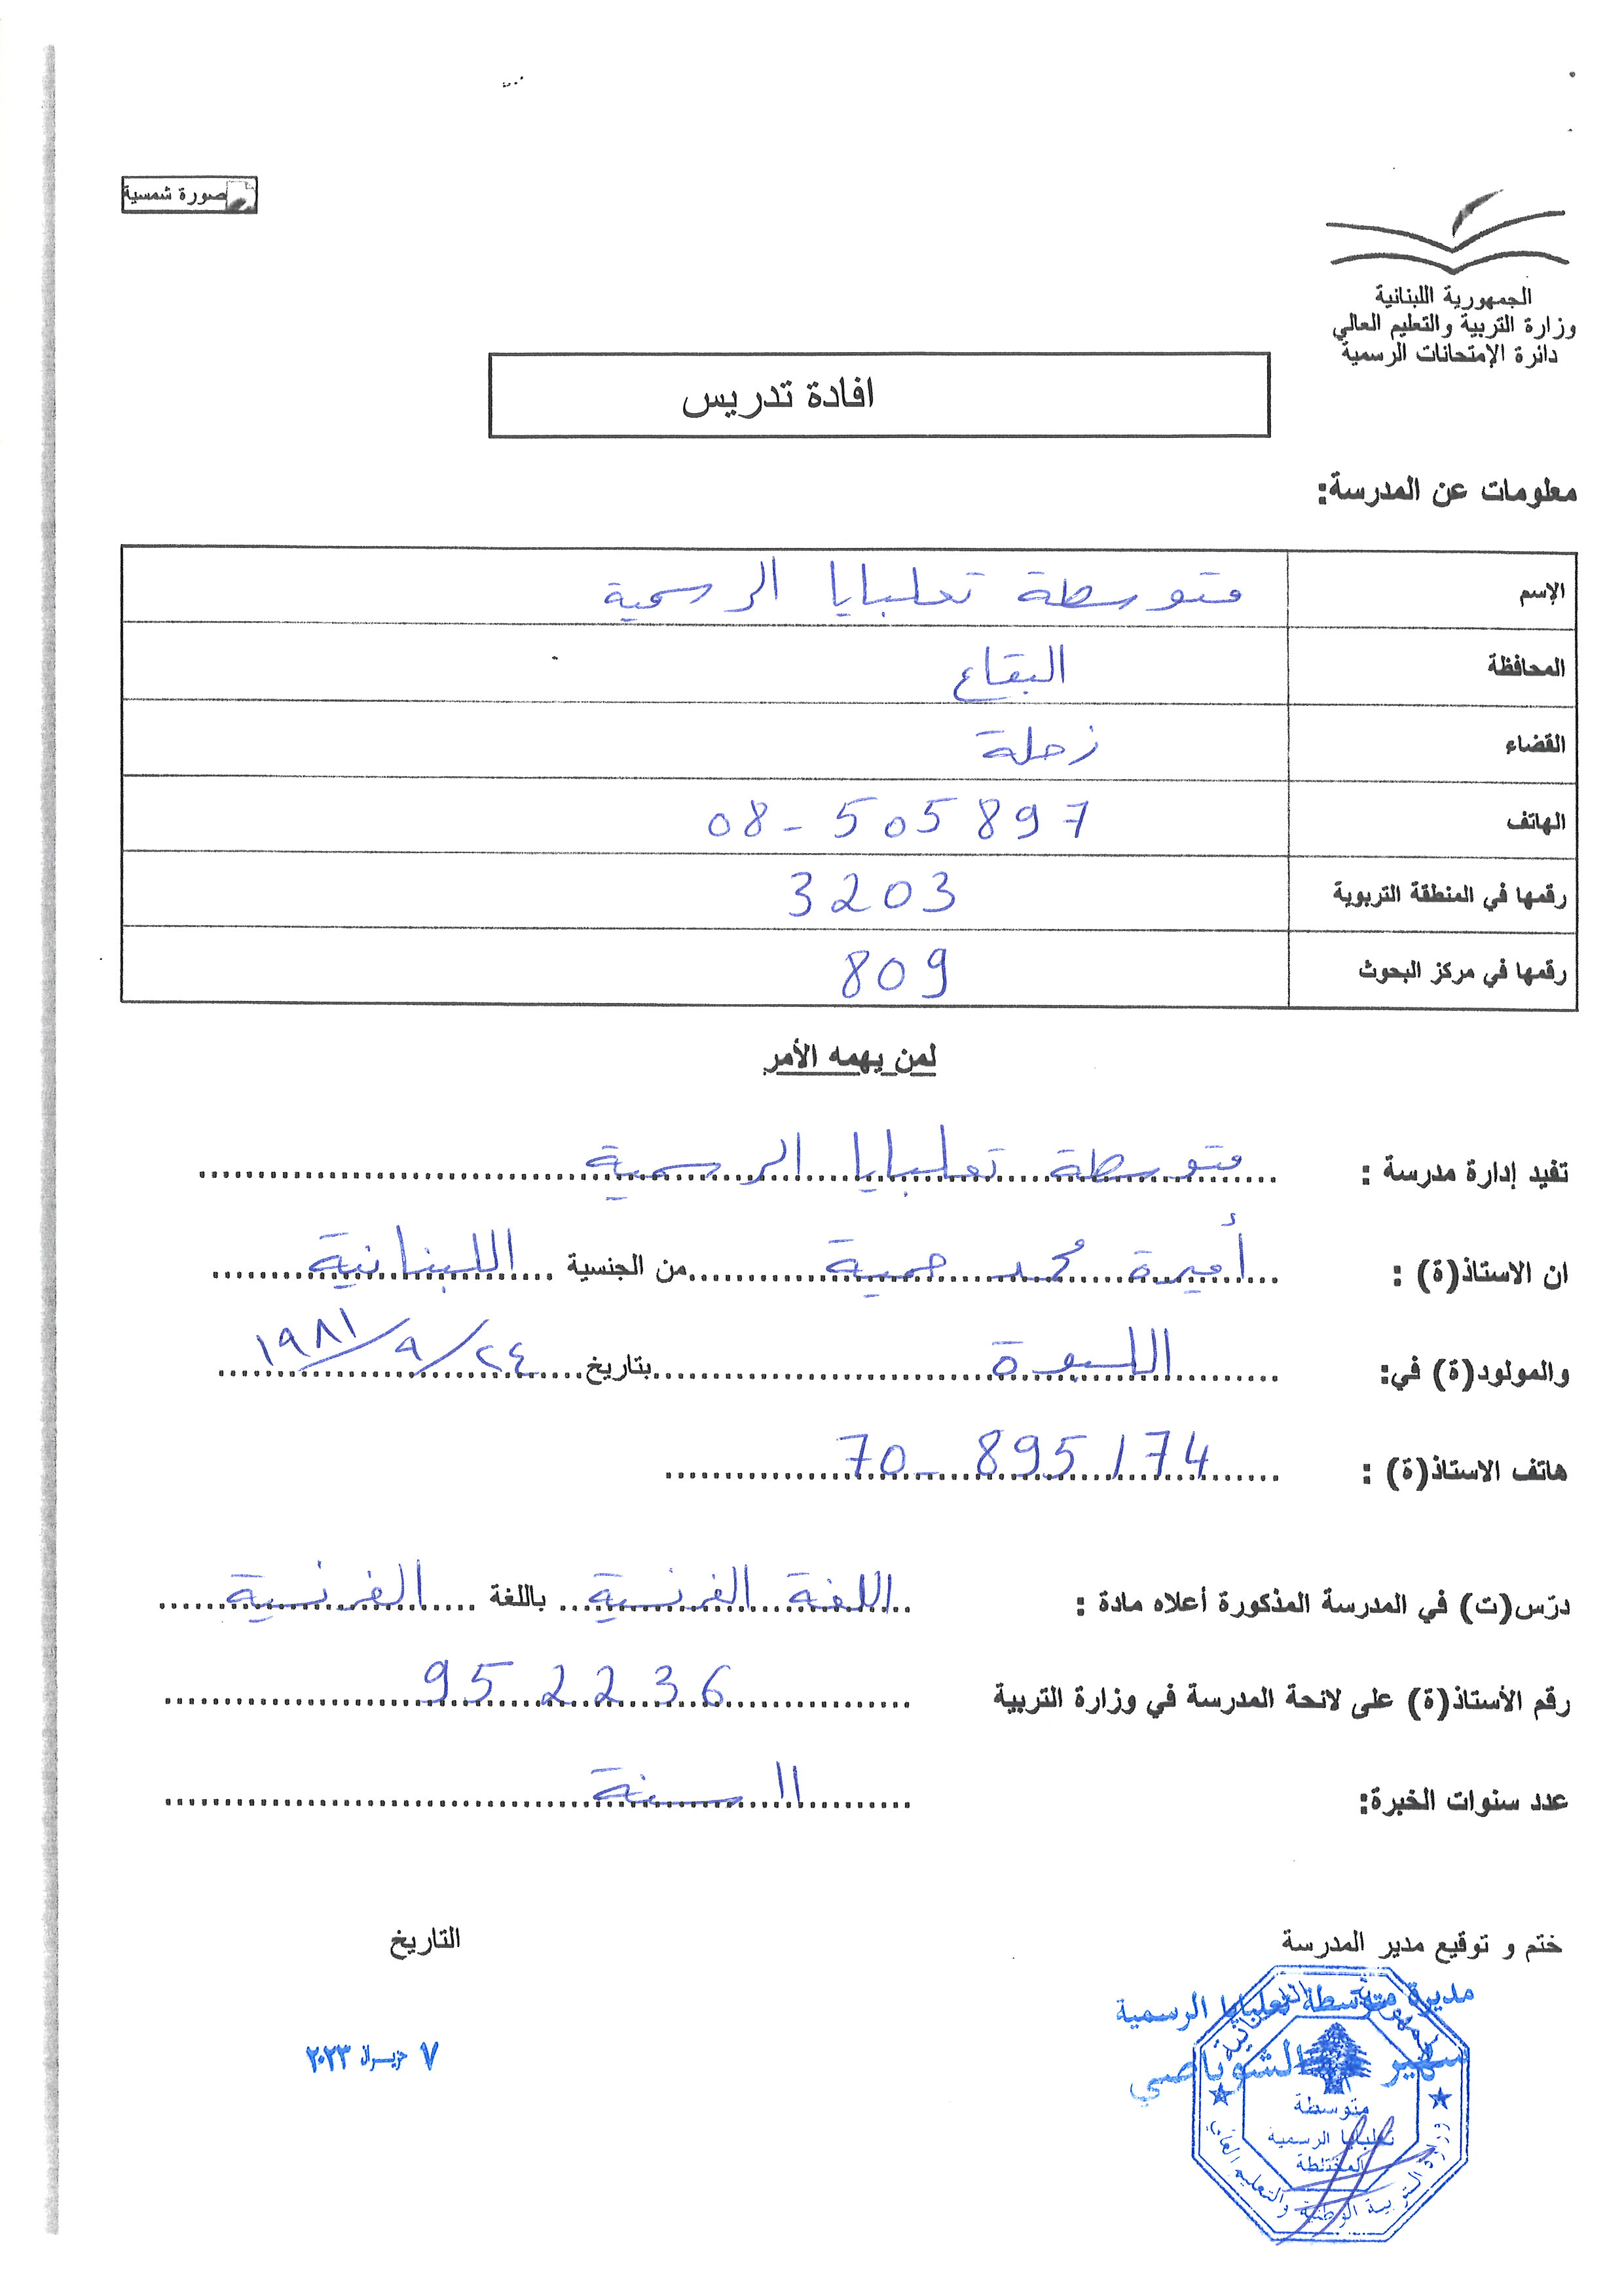 صورة شمسية
الجمهورية اللبنانية
وزارة التربية والتعليم العالي
دائرة الإمتحانات الرسمية
افادة تدريس
معلومات عن المدرسة:
الإسم متوسطة تعلبايا الرسمية
المحافظة البقاع
القضاء زحلة
الهاتف 08-505897
رقمها في المنطقة التربوية 3203
رقمها في مركز البحوث 809
لمن يهمه الأمر
تفيد إدارة مدرسة : متوسطة تعلبايا الرسمية
ان الاستاذ(ة) : أميرة محمد حمية من الجنسية اللبنانية
والمولود(ة) في: اللبوة بتاريخ ٢٤/٩/١٩٨١
هاتف الاستاذ(ة) : 70-895174
درّس(ت) في المدرسة المذكورة أعلاه مادة : اللغة الفرنسية باللغة الفرنسية
رقم الأستاذ(ة) على لائحة المدرسة في وزارة التربية 952236
عدد سنوات الخبرة: 11 سنة
ختم و توقيع مدير المدرسة التاريخ
مديرة متوسطة تعلبايا الرسمية
سهير الشوباصي
٧ حزيران ٢٠٢٣
متوسطة
تعلبايا الرسمية
المختلطة
وزارة التربية الوطنية والتعليم العالي